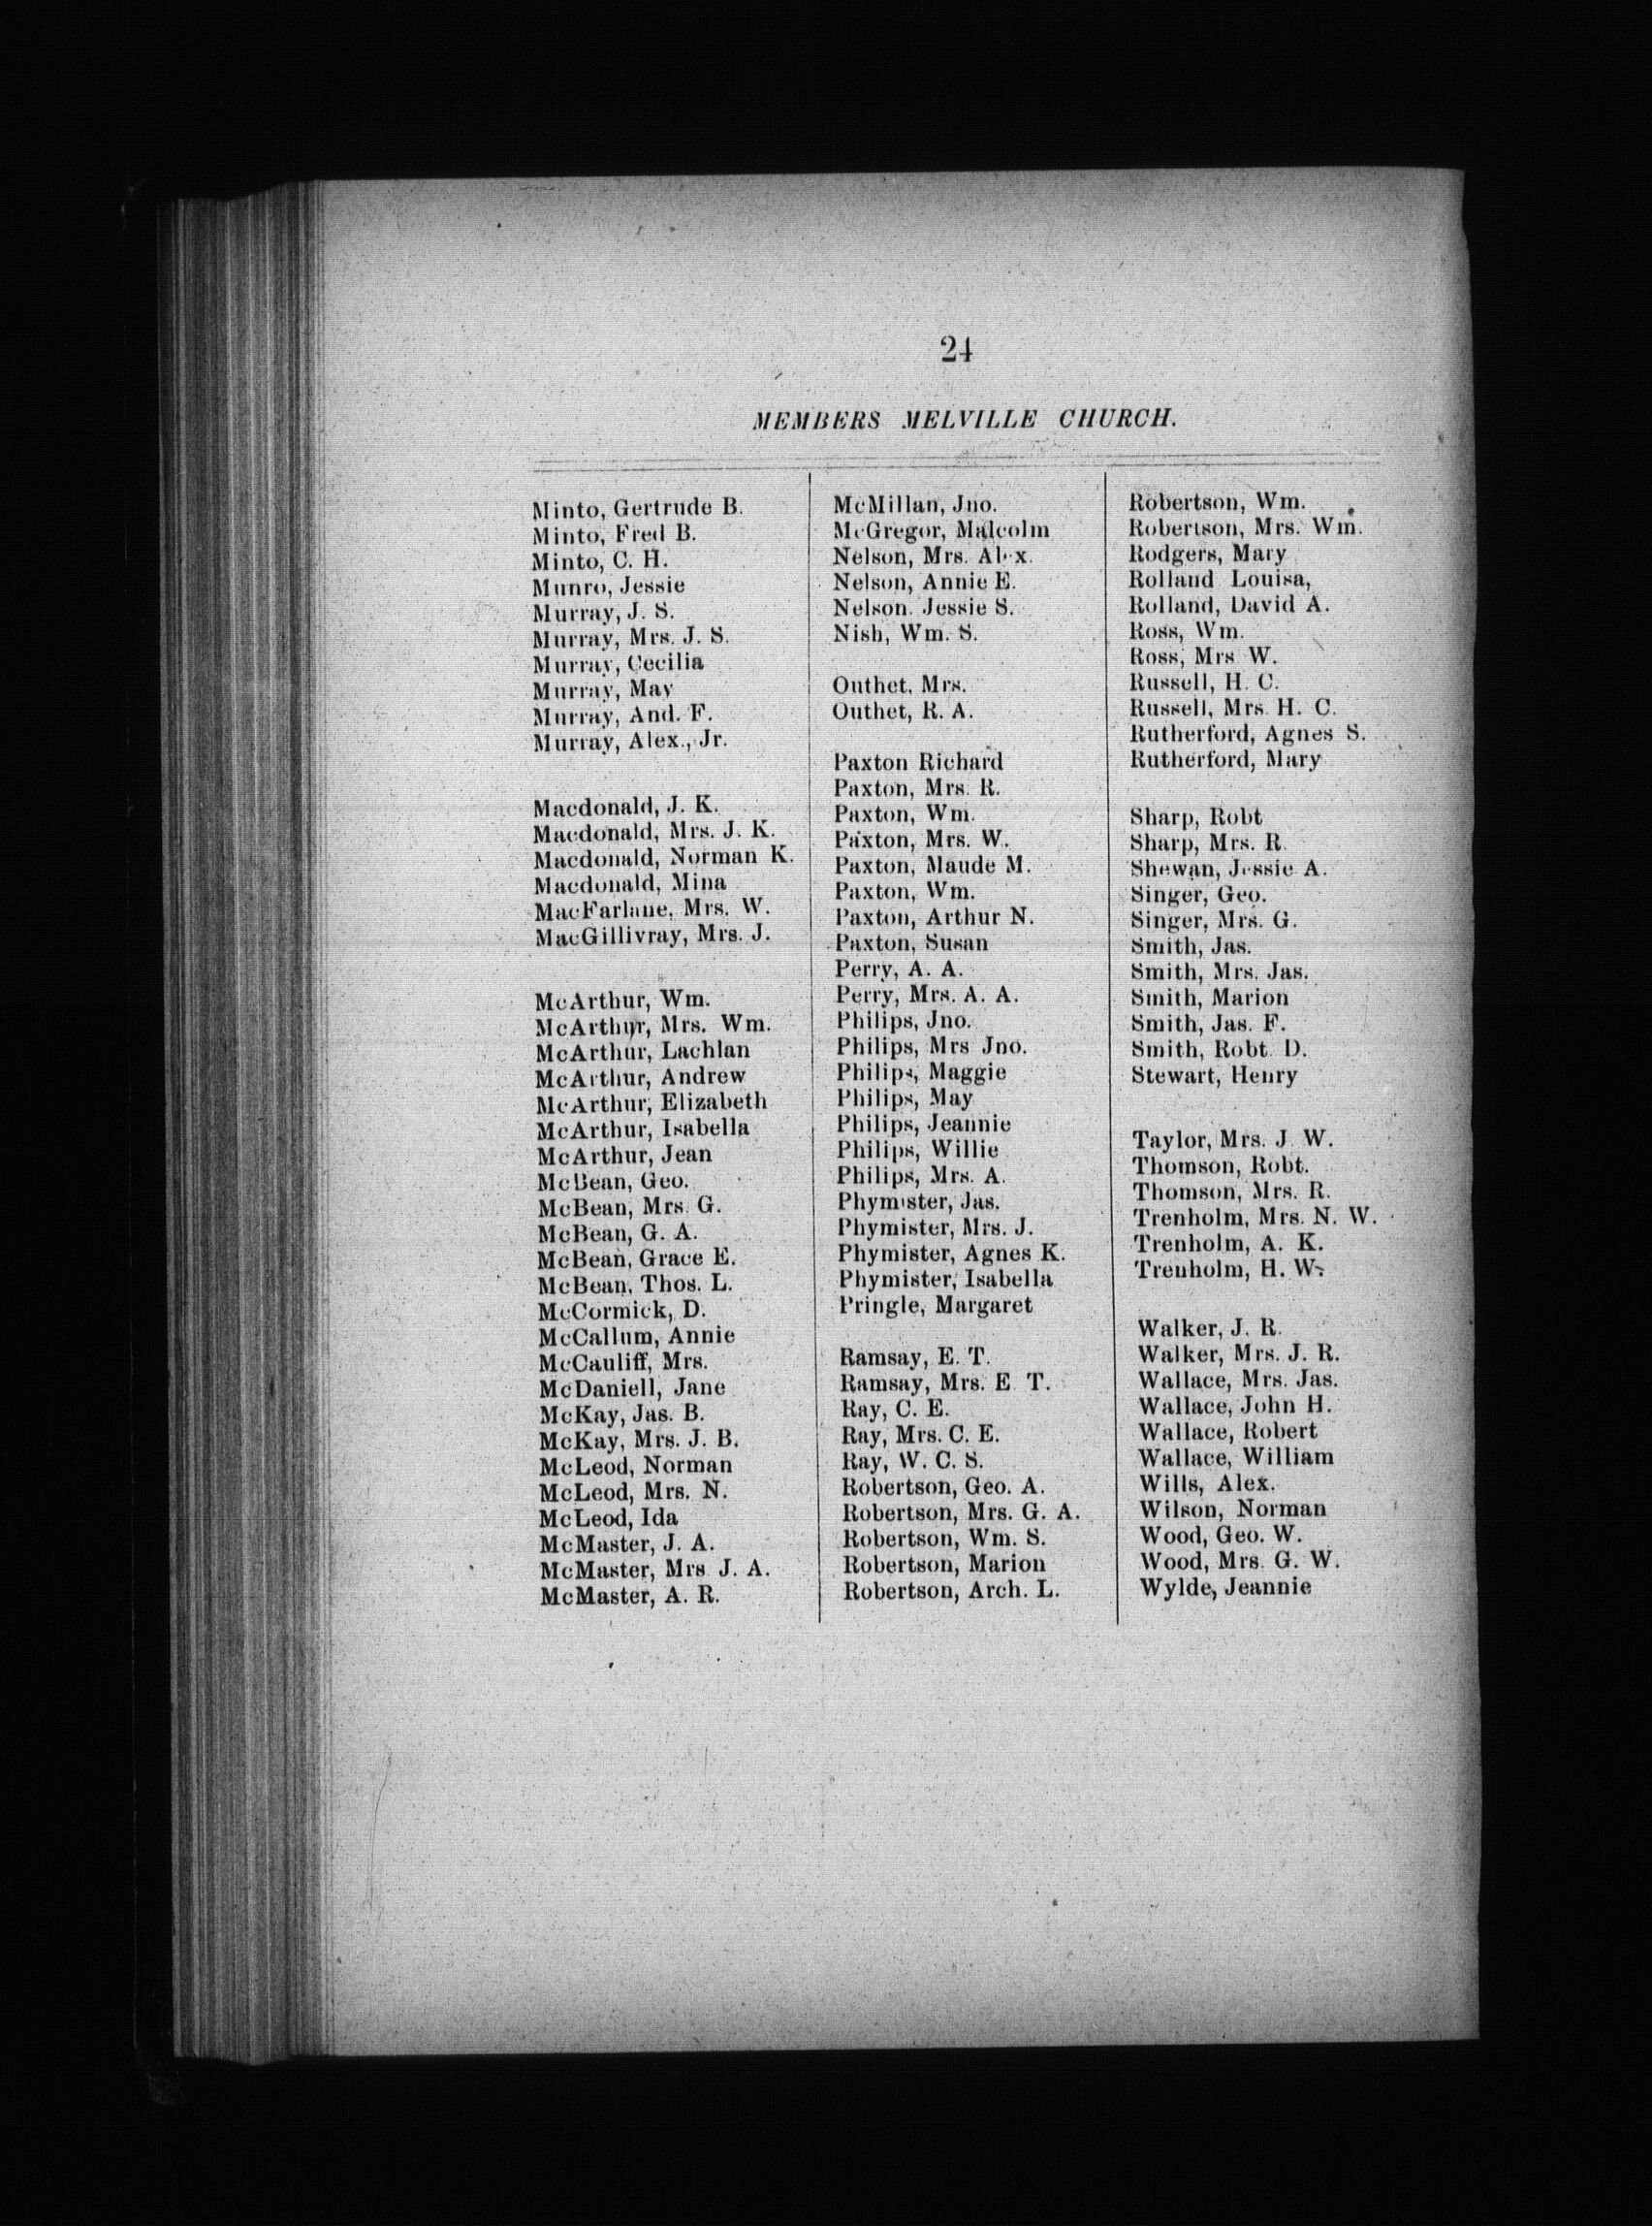 24
MEMBERS MELVILLE CHURCH.
Minto, Gertrude B.
Minto, Fred B.
Minto, C. H.
Munro, Jessie
Murray, J. S.
Murray, Mrs. J. S.
Murray, Cecilia
Murray, May
Murray, And. F.
Murray, Alex., Jr.
Macdonald, J. K.
Macdonald, Mrs. J. K.
Macdonald, Norman K.
Macdonald, Mina
MacFarlane, Mrs. W.
MacGillivray, Mrs. J.
McArthur, Wm.
McArthur, Mrs. Wm.
McArthur, Lachlan
McArthur, Andrew
McArthur, Elizabeth
McArthur, Isabella
McArthur, Jean
McBean, Geo.
McBean, Mrs. G.
McBean, G. A.
McBean, Grace E.
McBean, Thos. L.
McCormick, D.
McCallum, Annie
McCauliff, Mrs.
McDaniell, Jane
McKay, Jas. B.
McKay, Mrs. J. B.
McLeod, Norman
McLeod, Mrs. N.
McLeod, Ida
McMaster, J. A.
McMaster, Mrs J. A.
McMaster, A. R.
McMillan, Jno.
McGregor, Malcolm
Nelson, Mrs. Alex.
Nelson, Annie E.
Nelson. Jessie S.
Nish, Wm. S.
Outhet, Mrs.
Outhet, R. A.
Paxton Richard
Paxton, Mrs. R.
Paxton, Wm.
Paxton, Mrs. W.
Paxton, Maude M.
Paxton, Wm.
Paxton, Arthur N.
Paxton, Susan
Perry, A. A.
Perry, Mrs. A. A.
Philips, Jno.
Philips, Mrs Jno.
Philips, Maggie
Philips, May
Philips, Jeannie
Philips, Willie
Philips, Mrs. A.
Phymister, Jas.
Phymister, Mrs. J.
Phymister, Agnes K.
Phymister, Isabella
Pringle, Margaret
Ramsay, E. T.
Ramsay, Mrs. E T.
Ray, C. E.
Ray, Mrs. C. E.
Ray, W. C. S.
Robertson, Geo. A.
Robertson, Mrs. G. A.
Robertson, Wm. S.
Robertson, Marion
Robertson, Arch. L.
Robertson, Wm.
Robertson, Mrs. Wm.
Rodgers, Mary
Rolland Louisa,
Rolland, David A.
Ross, Wm.
Ross, Mrs W.
Russell, H. C.
Russell, Mrs. H. C.
Rutherford, Agnes S.
Rutherford, Mary
Sharp, Robt
Sharp, Mrs. R.
Shewan, Jessie A.
Singer, Geo.
Singer, Mrs. G.
Smith, Jas.
Smith, Mrs. Jas.
Smith, Marion
Smith, Jas. F.
Smith, Robt. D.
Stewart, Henry
Taylor, Mrs. J W.
Thomson, Robt.
Thomson, Mrs. R.
Trenholm, Mrs. N. W.
Trenholm, A. K.
Trenholm, H. W.
Walker, J. R.
Walker, Mrs. J. R.
Wallace, Mrs. Jas.
Wallace, John H.
Wallace, Robert
Wallace, William
Wills, Alex.
Wilson, Norman
Wood, Geo. W.
Wood, Mrs. G. W.
Wylde, Jeannie